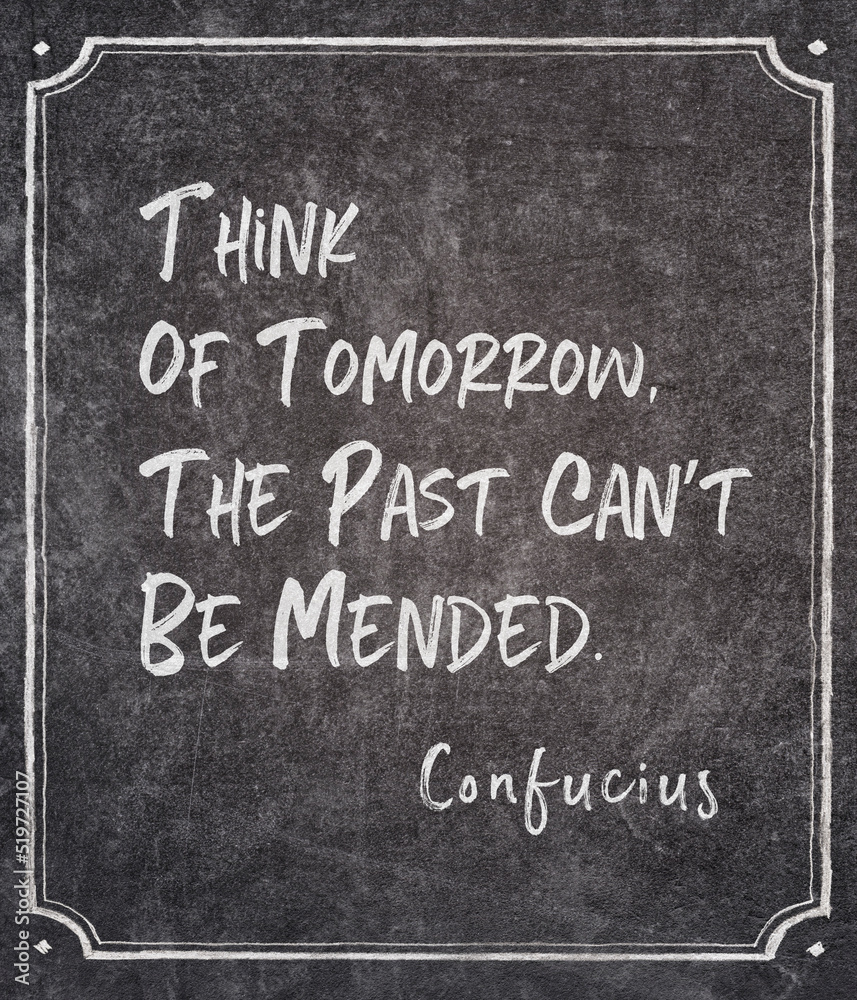 Think
Of Tomorrow,
The Past Can't
Be Mended.
Confucius
Adobe Stock | #519727107